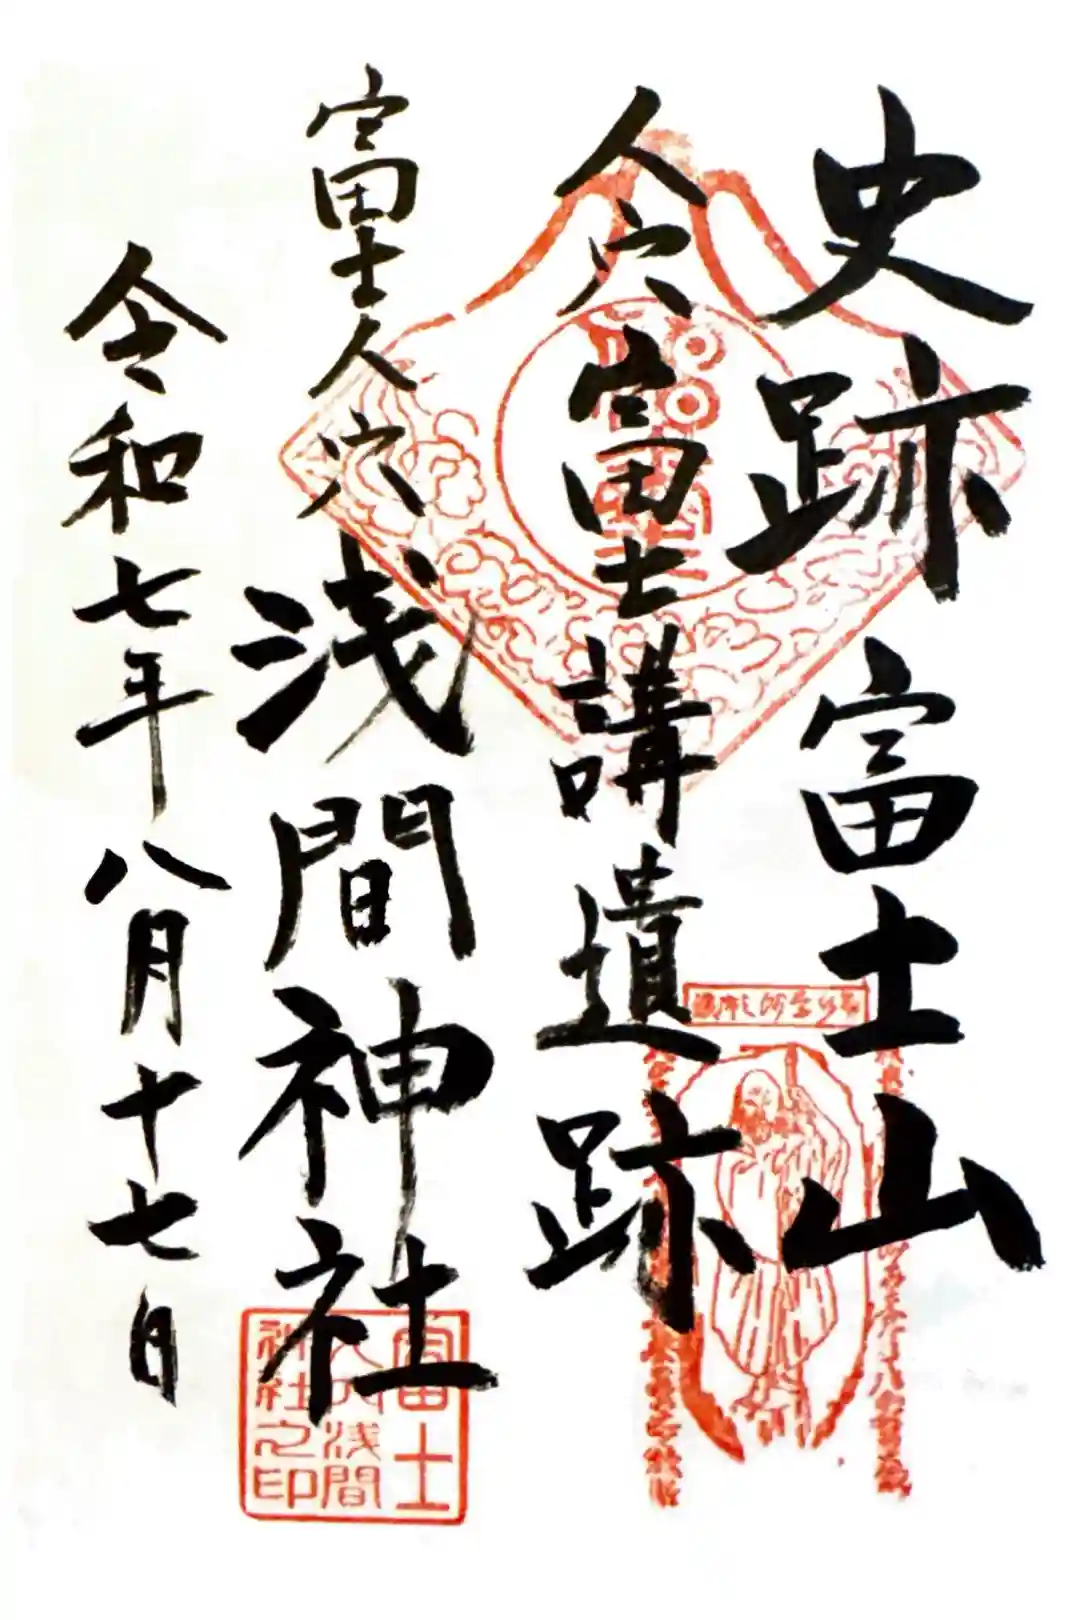 史跡富士山
人穴富士講遺跡
富士人穴浅間神社
令和七年八月十七日
富士
人穴浅間
神社之印